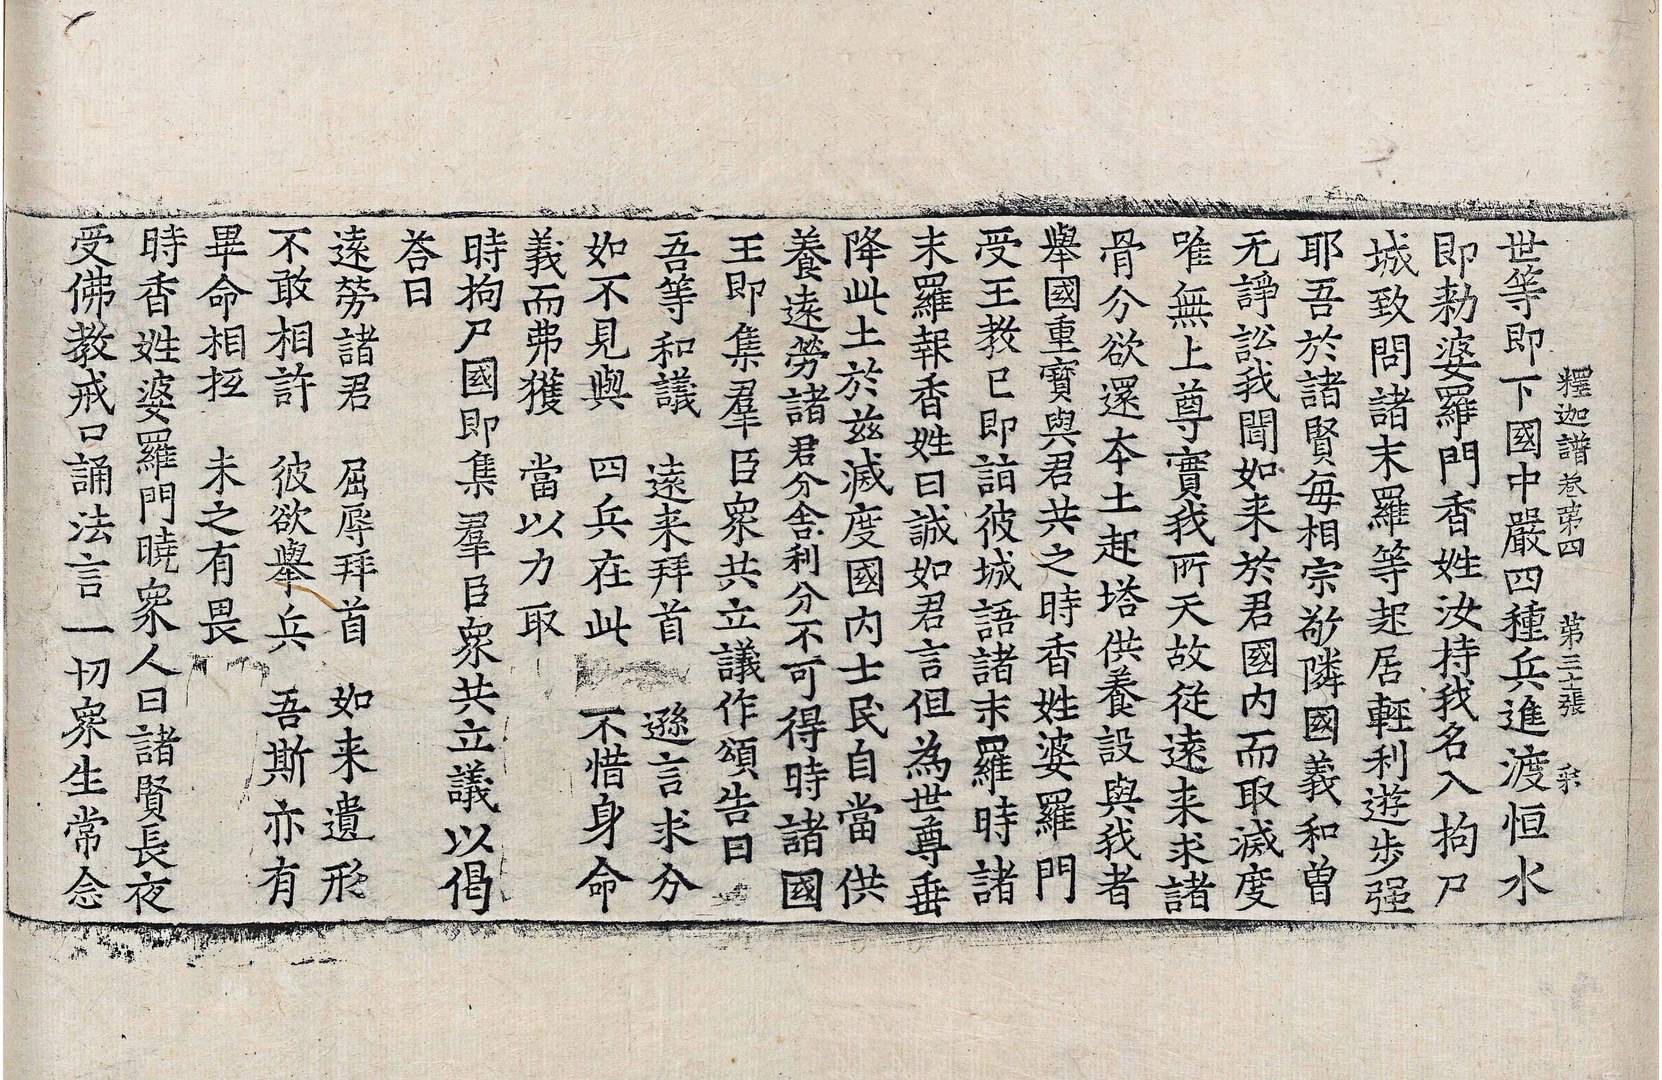 釋迦譜卷第四　第三十張　
世等即下國中嚴四種兵進渡恒水
即勑婆羅門香姓汝持我名入拘尸
城致問諸末羅等起居輕利遊步强
耶吾於諸賢每相宗敬隣國義和曽
无諍訟我聞如来於君國內而取滅度
唯無上尊實我所天故従遠来求諸
骨分欲還本土起塔供養設與我者
舉國重寳與君共之時香姓婆羅門
受王教已即詣彼城語諸末羅時諸
末羅報香姓曰誠如君言但為世尊垂
降此土於兹滅度國内士民自當供
養遠勞諸君分舍利分不可得時諸國
王即集羣臣衆共立議作頌告曰
吾等和議　遠来拜首　遜言求分
如不見與　四兵在此　不惜身命
義而弗獲　當以力取
時拘尸國即集羣臣衆共立議以偈
荅曰
遠勞諸君　屈辱拜首　如来遺形
不敢相許　彼欲舉兵　吾斯亦有
畢命相抂　未之有畏
時香姓婆羅門曉衆人曰諸賢長夜
受佛教戒口誦法言一切衆生常念